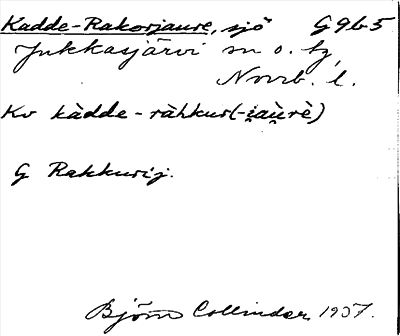 Kadde-Rakorjaure, sjö G9b5
Jukkasjärvi sn o. tg,
Norrb. l.
Kv kàdde-ràhkur(-i̯au̯rè)
G Rakkurij.
Björn Collinder 1937.